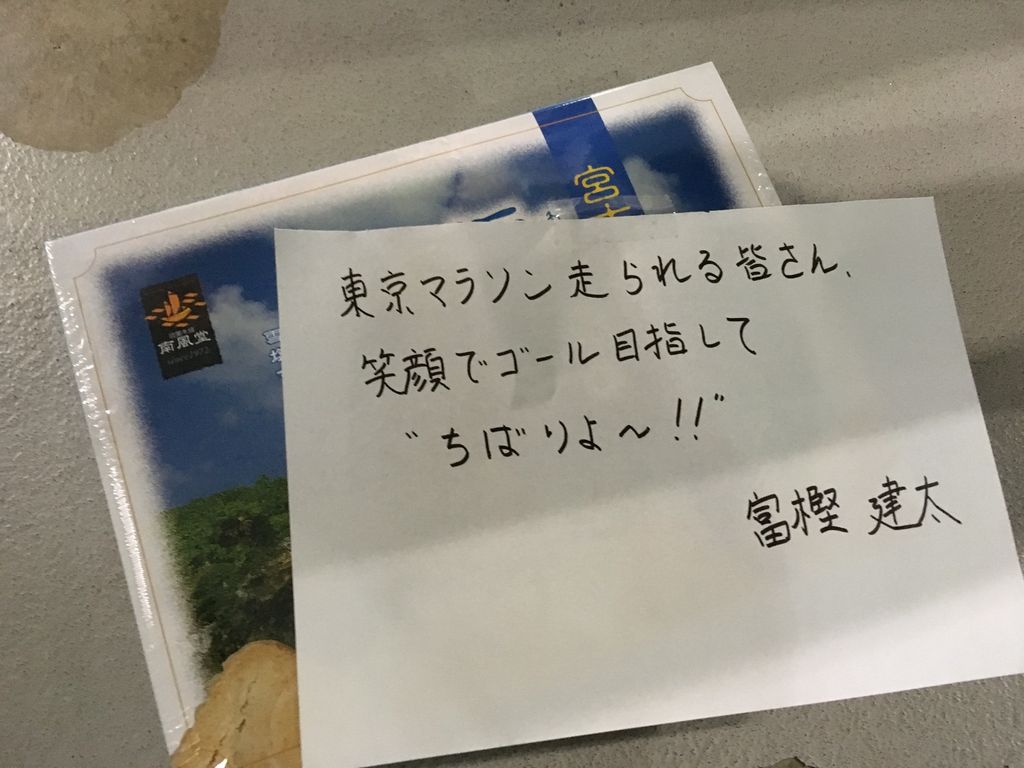 宮古
南風堂
since1972
雪塩
東京マラソン走られる皆さん、
笑顔でゴール目指して
“ちばりよ～!!”
富樫 建太